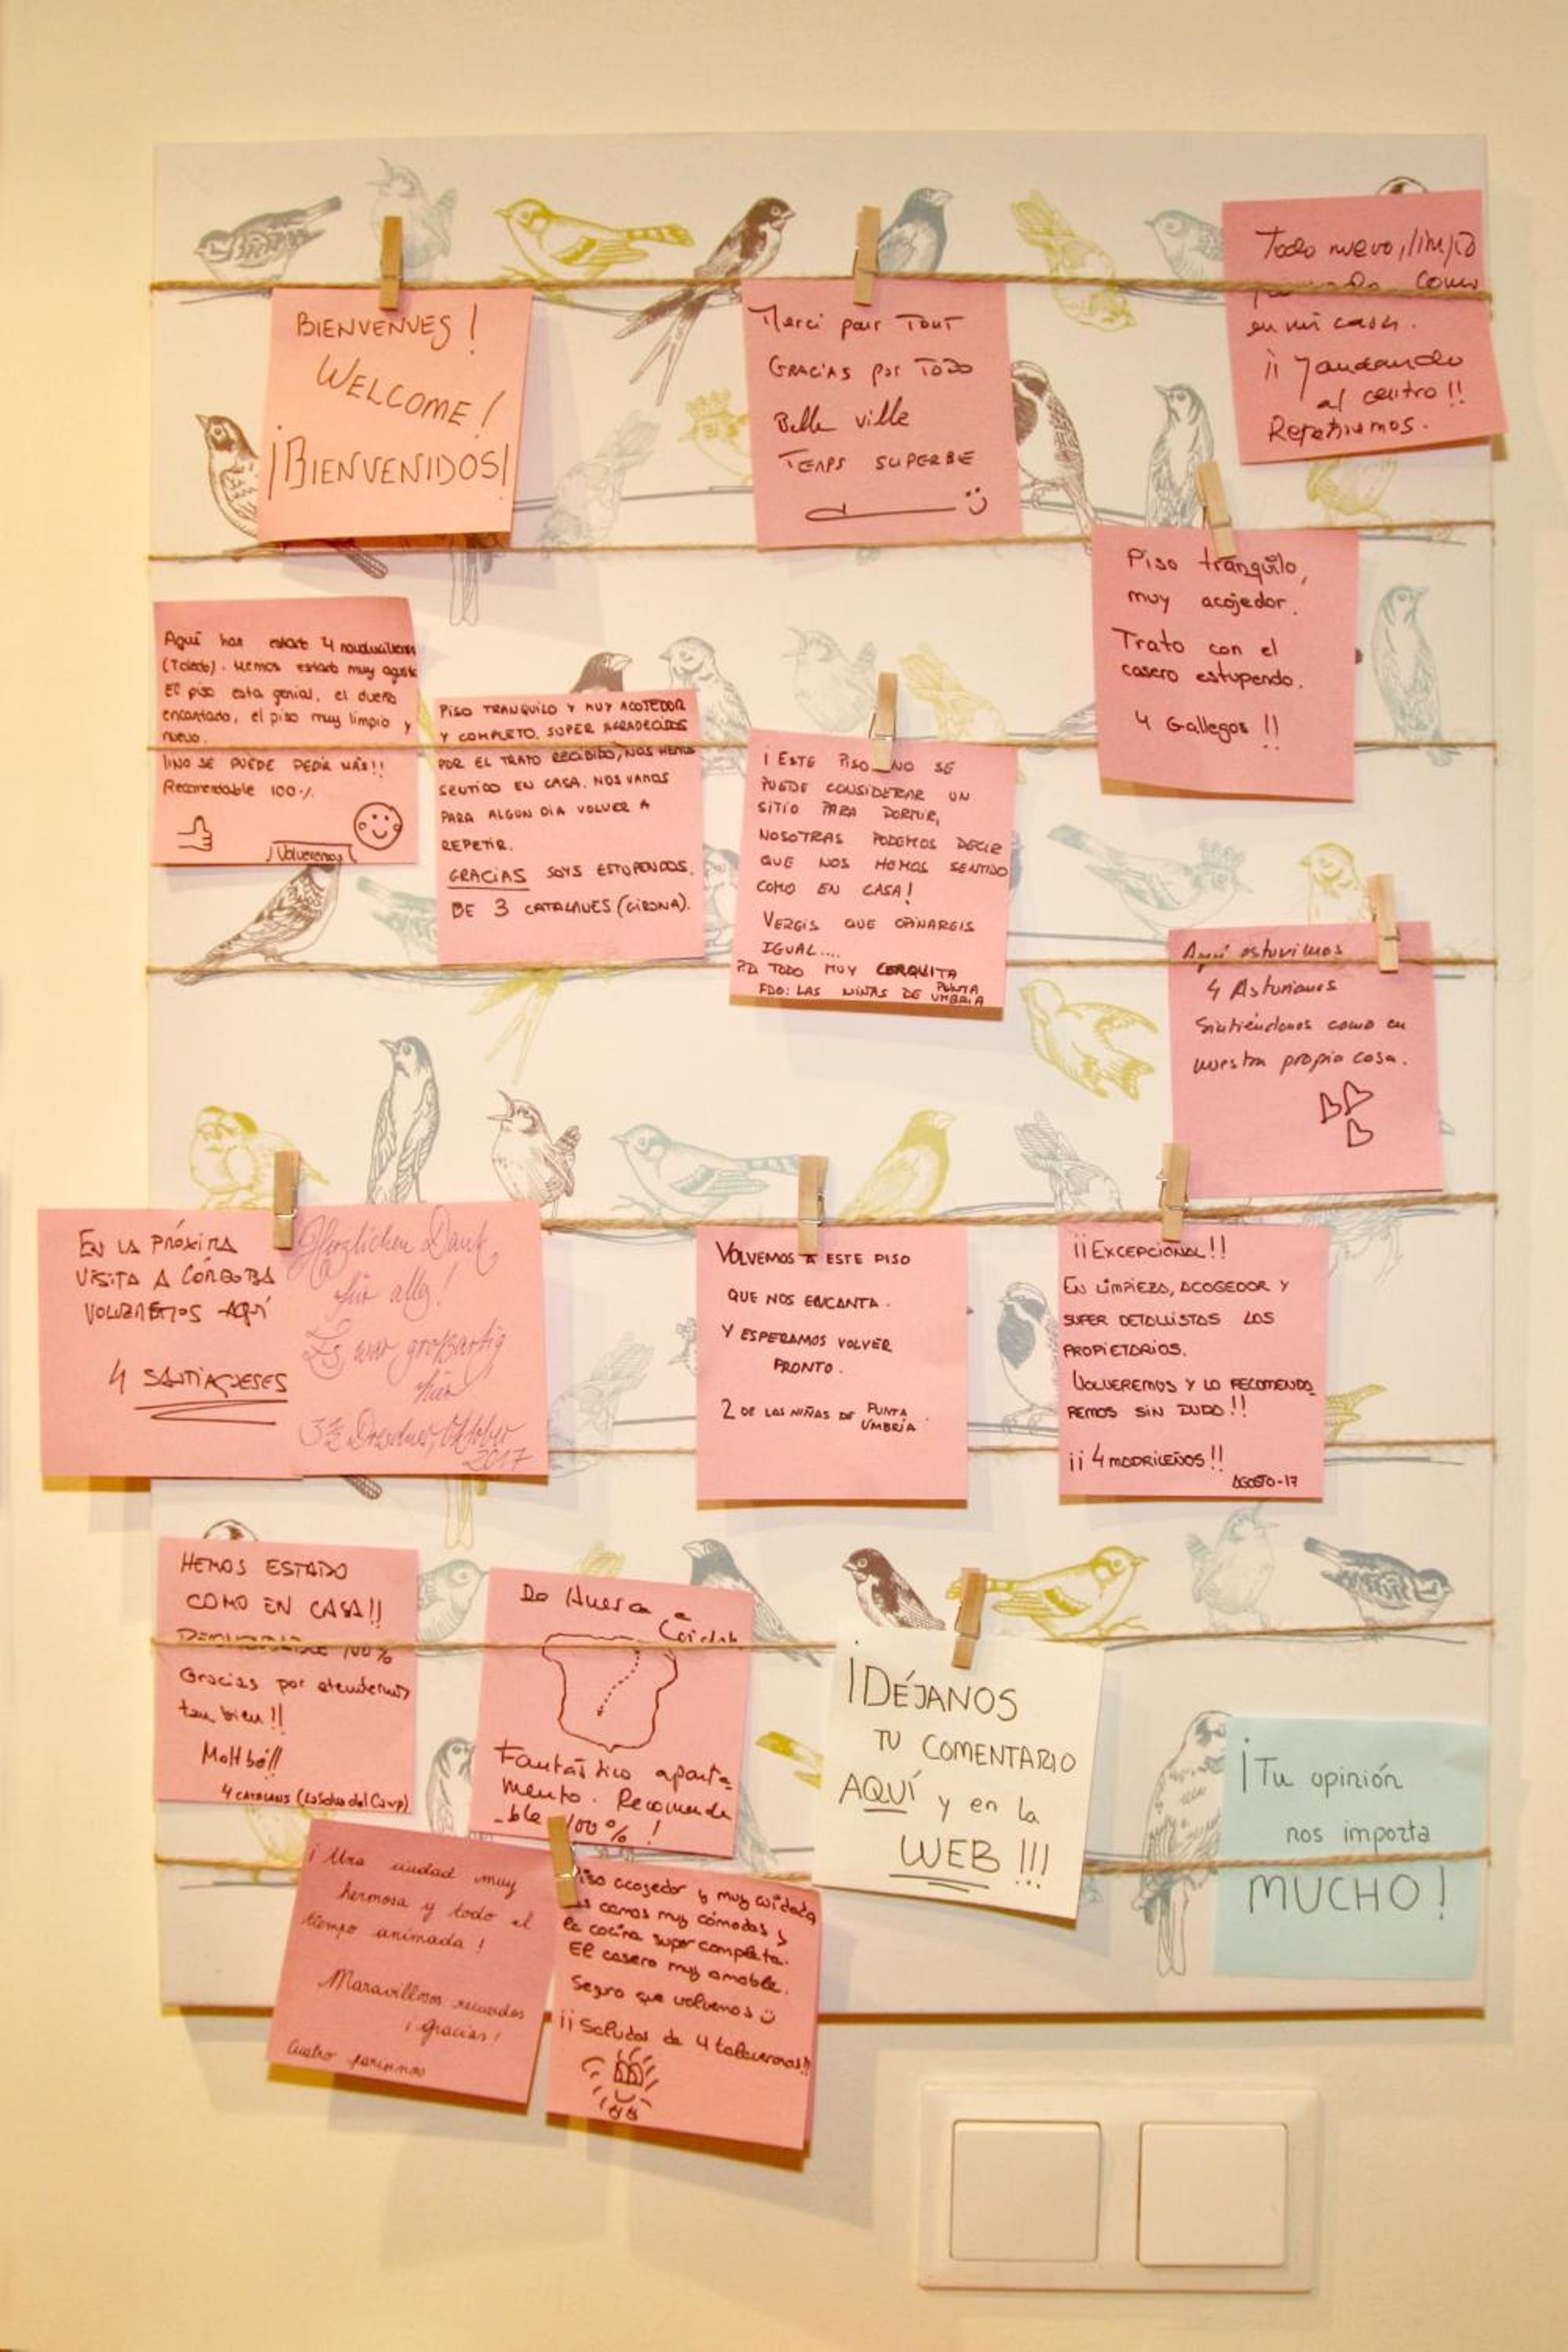 BIENVENUES!
WELCOME!
¡BIENVENIDOS!
Merci pour Tout
GRACIAS por TODO
Belle ville
TEMPS SUPERBE
Todo nuevo, limpio
como
en mi casa.
¡¡ Y andando
al centro!!
Repetiremos.
Piso tranquilo,
muy acojedor.
Trato con el
casero estupendo.
4 Gallegos !!
Aquí han estado 4
(Toledo). Hemos estado muy agusto
El piso esta genial, el dueño
encantado, el piso muy limpio y
nuevo.
!!NO SE PUEDE PEDIR MÁS!!
Recomendable 100%
¡Volveremos!
PISO TRANQUILO Y MUY ACOJEDOR
Y COMPLETO. SUPER AGRADECIDOS
POR EL TRATO RECIBIDO, NOS HEMOS
SENTIDO EN CASA. NOS VAMOS
PARA ALGUN DIA VOLVER A
REPETIR.
GRACIAS SOYS ESTUPENDOS.
DE 3 CATALANES (GIRONA).
¡ESTE PISO NO SE
PUEDE CONSIDERAR UN
SITIO PARA DORMIR,
NOSOTRAS PODEMOS DECIR
QUE NOS HEMOS SENTIDO
COMO EN CASA!
VEREIS QUE OPINAREIS
IGUAL....
P.D. TODO MUY CERQUITA
FDO: LAS NIÑAS DE PUNTA
UMBRIA
Aquí estuvimos
4 Asturianos
Sintiendonos como en
nuestra propia casa.
EN LA PRÓXIMA
VISITA A CÓRDOBA
VOLVEREMOS AQUÍ
4 SANTIAGUESES
Herzlichen Dank
für alles!
Es war großartig
hier
3 Dresdner, Oktober
2017
VOLVEMOS A ESTE PISO
QUE NOS ENCANTA.
Y ESPERAMOS VOLVER
PRONTO.
2 DE LAS NIÑAS DE PUNTA
UMBRÍA.
¡¡EXCEPCIONAL!!
EN LIMPIEZA, ACOGEDOR Y
SUPER DETALLISTAS LOS
PROPIETARIOS.
VOLVEREMOS Y LO RECOMENDA
REMOS SIN DUDA!!
¡¡4 MADRILEÑOS!!
AGOSTO-17
HEMOS ESTADO
COMO EN CASA!!
100%
Gracias por atendernos
tan bien!!
Molt bé!!
4 CATALANS (La Selva del Camp)
De Huesca a
Córdoba
Fantástico aparta-
mento. Recomenda
-ble 100% !
¡DÉJANOS
TU COMENTARIO
AQUÍ y en la
WEB !!!
¡Tu opinión
nos importa
MUCHO!
¡Una ciudad muy
hermosa y todo el
tiempo animada!
Maravillosos recuerdos
¡Gracias!
Cuatro
Piso acogedor y muy cuidado
las camas muy cómodas y
la cocina super completa.
El casero muy amable.
Seguro que volvemos
¡¡Saludos de 4 talaveranas!!